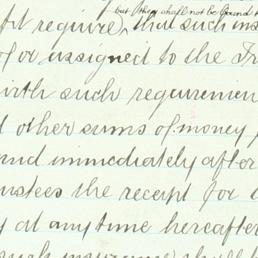 but they shall not be bound t
ft require, that such ins
of or assigned to the Tr
with such requiremen
d other sums of money
and immediately after
ustees the receipt for
y at any time hereafter
such insurance shall